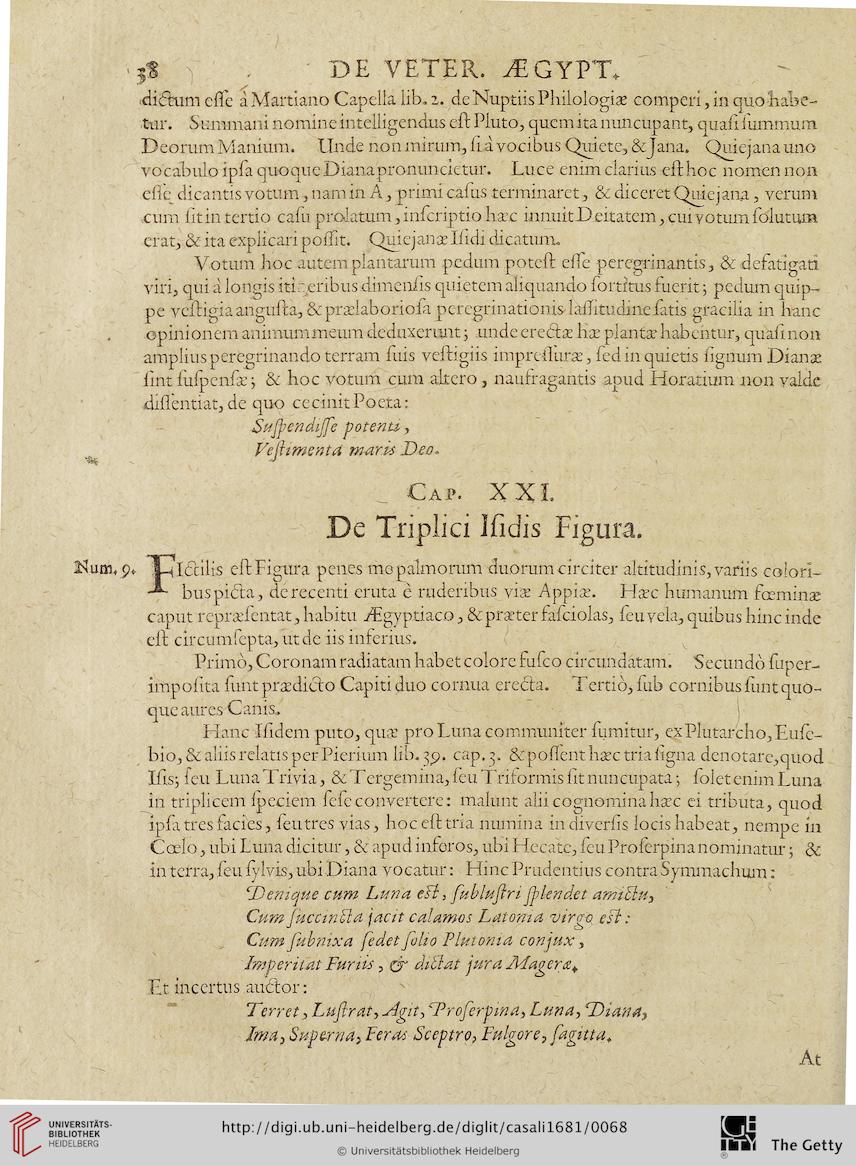 38 DE VETER. ÆGYPT.
dictum esse à Martiano Capella lib. 2. de Nuptiis Philologiæ comperi, in quo habe-
tur. Summani nomine intelligendus est Pluto, quem ita nuncupant, quasi summum
Deorum Manium. Unde non mirum, si à vocibus Quiete, & Jana. Quiejana uno
vocabulo ipsa quoque Diana pronuncietur. Luce enim clarius est hoc nomen non
esse dicantis votum, nam in A, primi casus terminaret, & diceret Quiejana, verum
cum sit in tertio casu prolatum, inscriptio hæc innuit Deitatem, cui votum solutum
erat, & ita explicari possit. Quiejanæ Isidi dicatum.
Votum hoc autem plantarum pedum potest esse peregrinantis, & defatigati
viri, qui à longis itineribus dimensis quietem aliquando sortitus fuerit; pedum quip-
pe vestigia angusta, & prælaboriosa peregrinationis lassitudine satis gracilia in hanc
opinionem animum meum deduxerunt; unde erectæ hæ plantæ habentur, quasi non
amplius peregrinando terram suis vestigiis impressuræ, sed in quietis signum Dianæ
sint suspensæ; & hoc votum cum altero, naufragantis apud Horatium non valde
dissentiat, de quo cecinit Poeta:
Suspendisse potenti,
Vestimenta maris Deo.
CAP. XXI.
De Triplici Isidis Figura.
Num. 9. FIctilis est Figura penes me palmorum duorum circiter altitudinis, variis colori-
bus picta, de recenti eruta è ruderibus viæ Appiæ. Hæc humanum fœminæ
caput repræsentat, habitu Ægyptiaco, & præter fasciolas, seu vela, quibus hinc inde
est circumsepta, ut de iis inferius.
Primò, Coronam radiatam habet colore fusco circundatam. Secundò super-
imposita sunt prædicto Capiti duo cornua erecta. Tertiò, sub cornibus sunt quo-
que aures Canis.
Hanc Isidem puto, quæ pro Luna communiter sumitur, ex Plutarcho, Euse-
bio, & aliis relatis per Pierium lib. 39. cap. 3. & possent hæc tria signa denotare, quod
Isis; seu Luna Trivia, & Tergemina, seu Triformis sit nuncupata; solet enim Luna
in triplicem speciem sese convertere: malunt alii cognomina hæc ei tributa, quod
ipsa tres facies, seu tres vias, hoc est tria numina in diversis locis habeat, nempe in
Cœlo, ubi Luna dicitur, & apud inferos, ubi Hecate, seu Proserpina nominatur; &
in terra, seu sylvis, ubi Diana vocatur: Hinc Prudentius contra Symmachum:
Denique cum Luna est, sublustri splendet amictu,
Cum succincta jacit calamos Latonia virgo est:
Cum subnixa sedet solio Plutonia conjux,
Imperitat Furiis, & dictat jura Mageræ.
Et incertus auctor:
Terret, Lustrat, Agit, Proserpina, Luna, Diana,
Ima, Superna, Feras Sceptro, Fulgore, sagitta.
At
UNIVERSITÄTS-
BIBLIOTHEK
HEIDELBERG
http://digi.ub.uni-heidelberg.de/diglit/casali1681/0068
© Universitätsbibliothek Heidelberg
The Getty